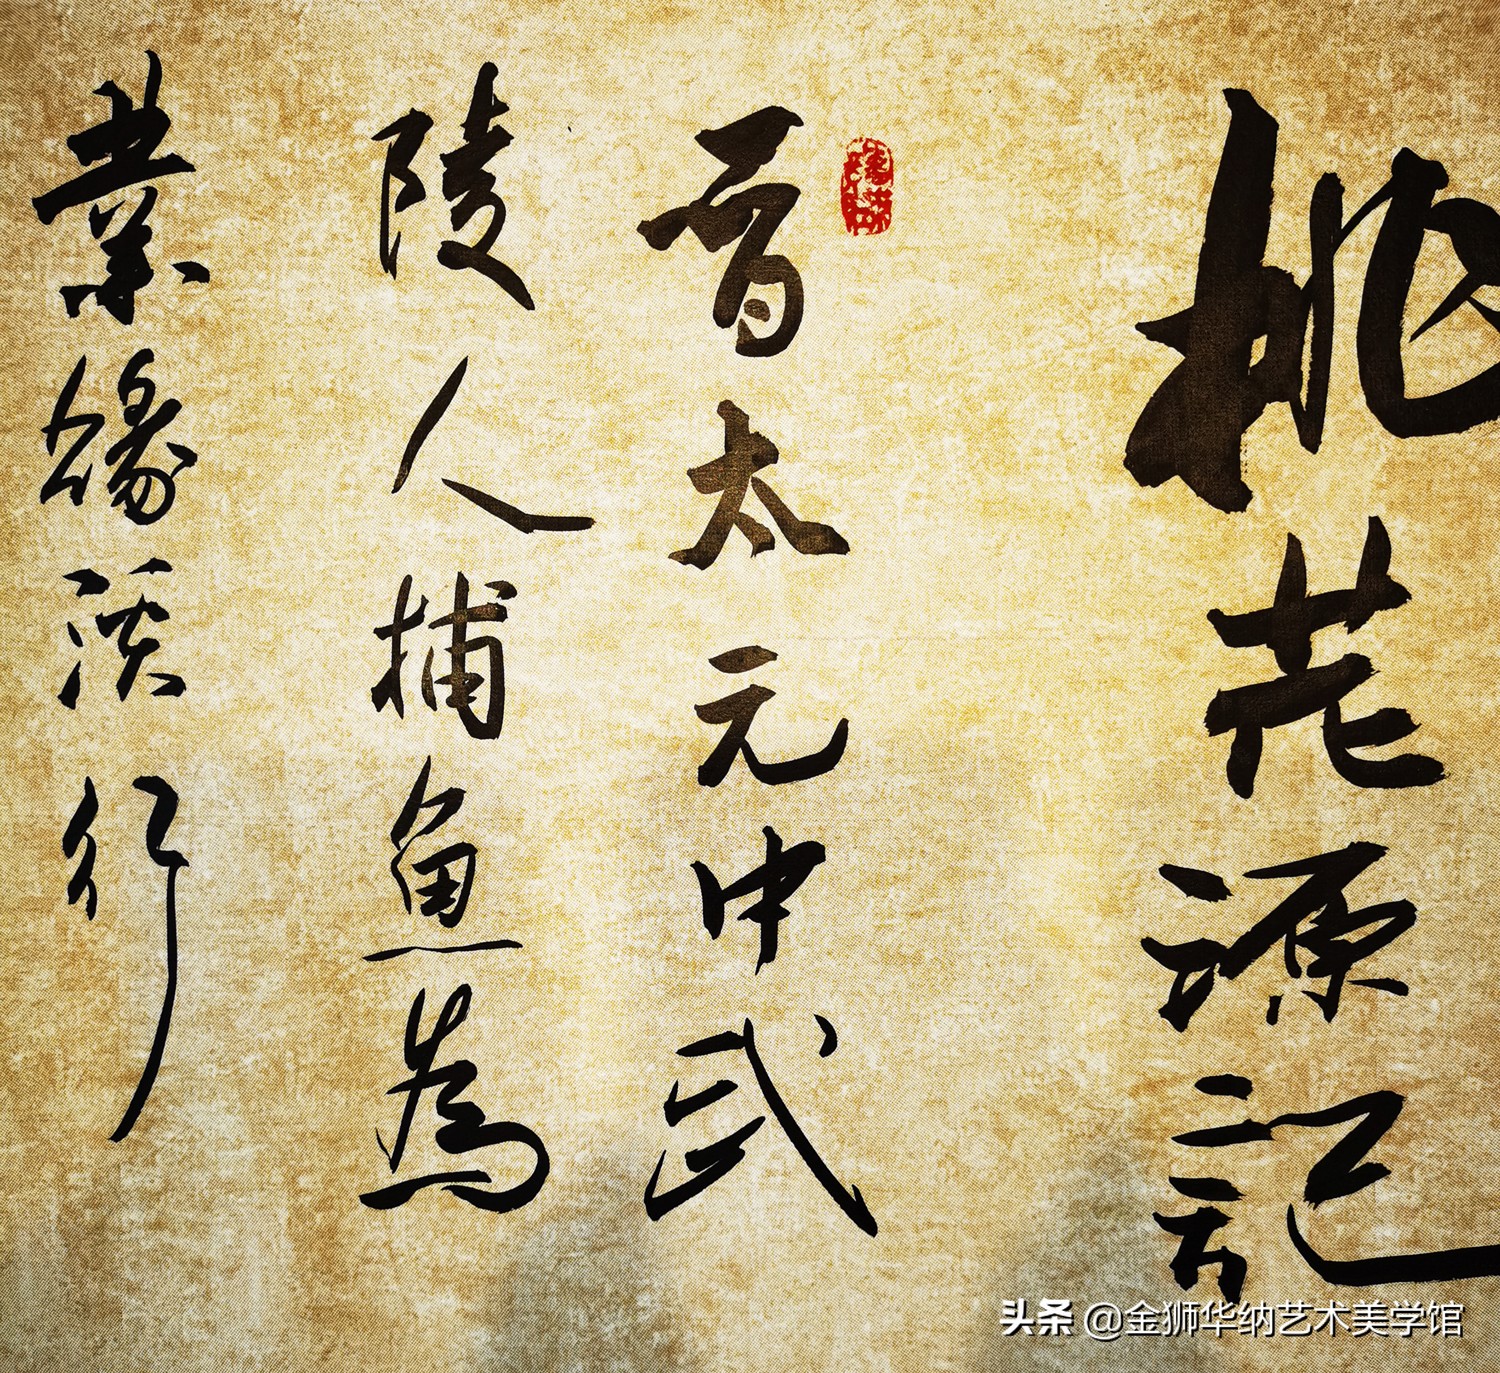 桃花源记
晋太元中武
陵人捕鱼為
業緣溪行
头条 @金狮华纳艺术美学馆